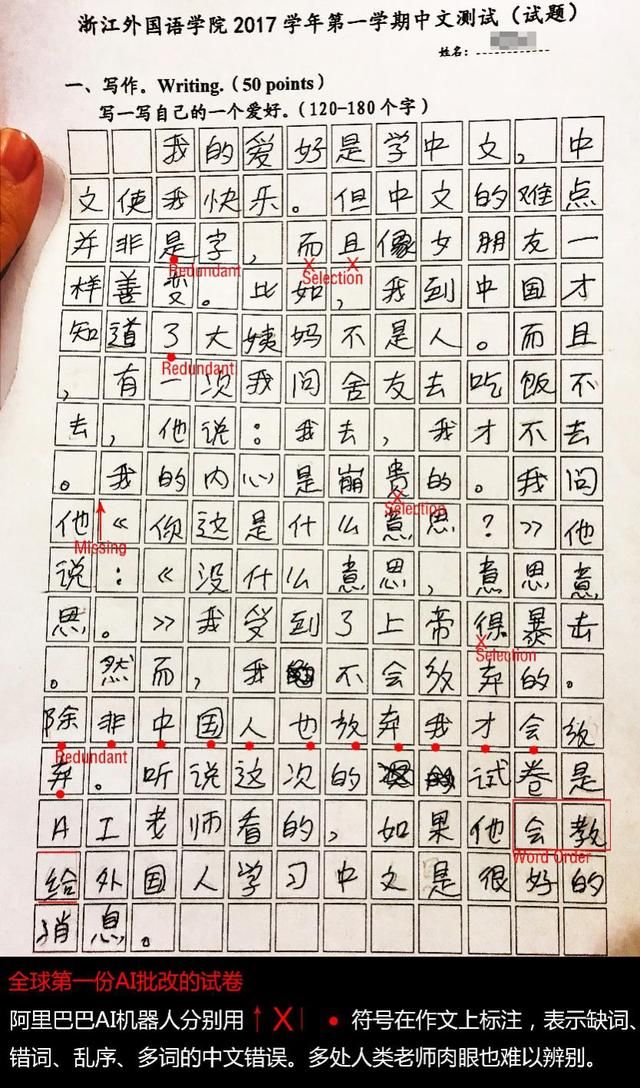 浙江外国语学院 2017 学年第一学期中文测试（试题）
姓名：
一、写作。Writing.（50 points）
写一写自己的一个爱好。（120-180 个字）
我的爱好是学中文，中
文使我快乐。但中文的难点
并非是字，而且像女朋友一
Redundant Selection
样善变。比如，我到中国才
知道了大姨妈不是人。而且
Redundant
，有一次我问舍友去吃饭不
去，他说：我去，我才不去
。我的内心是崩贵的。我问
Selection
他《你这是什么意思？》他
Missing
说：《没什么意思，意思意
思。》我受到了上帝得暴击
Selection
。然而，我不会放弃的。
除非中国人也放弃我才会放
Redundant
弃。听说这次的试卷是
AI老师看的，如果他会教
Word Order
给外国人学习中文是很好的
消息。
全球第一份AI批改的试卷
阿里巴巴AI机器人分别用 ↑ X | • 符号在作文上标注，表示缺词、
错词、乱序、多词的中文错误。多处人类老师肉眼也难以辨别。